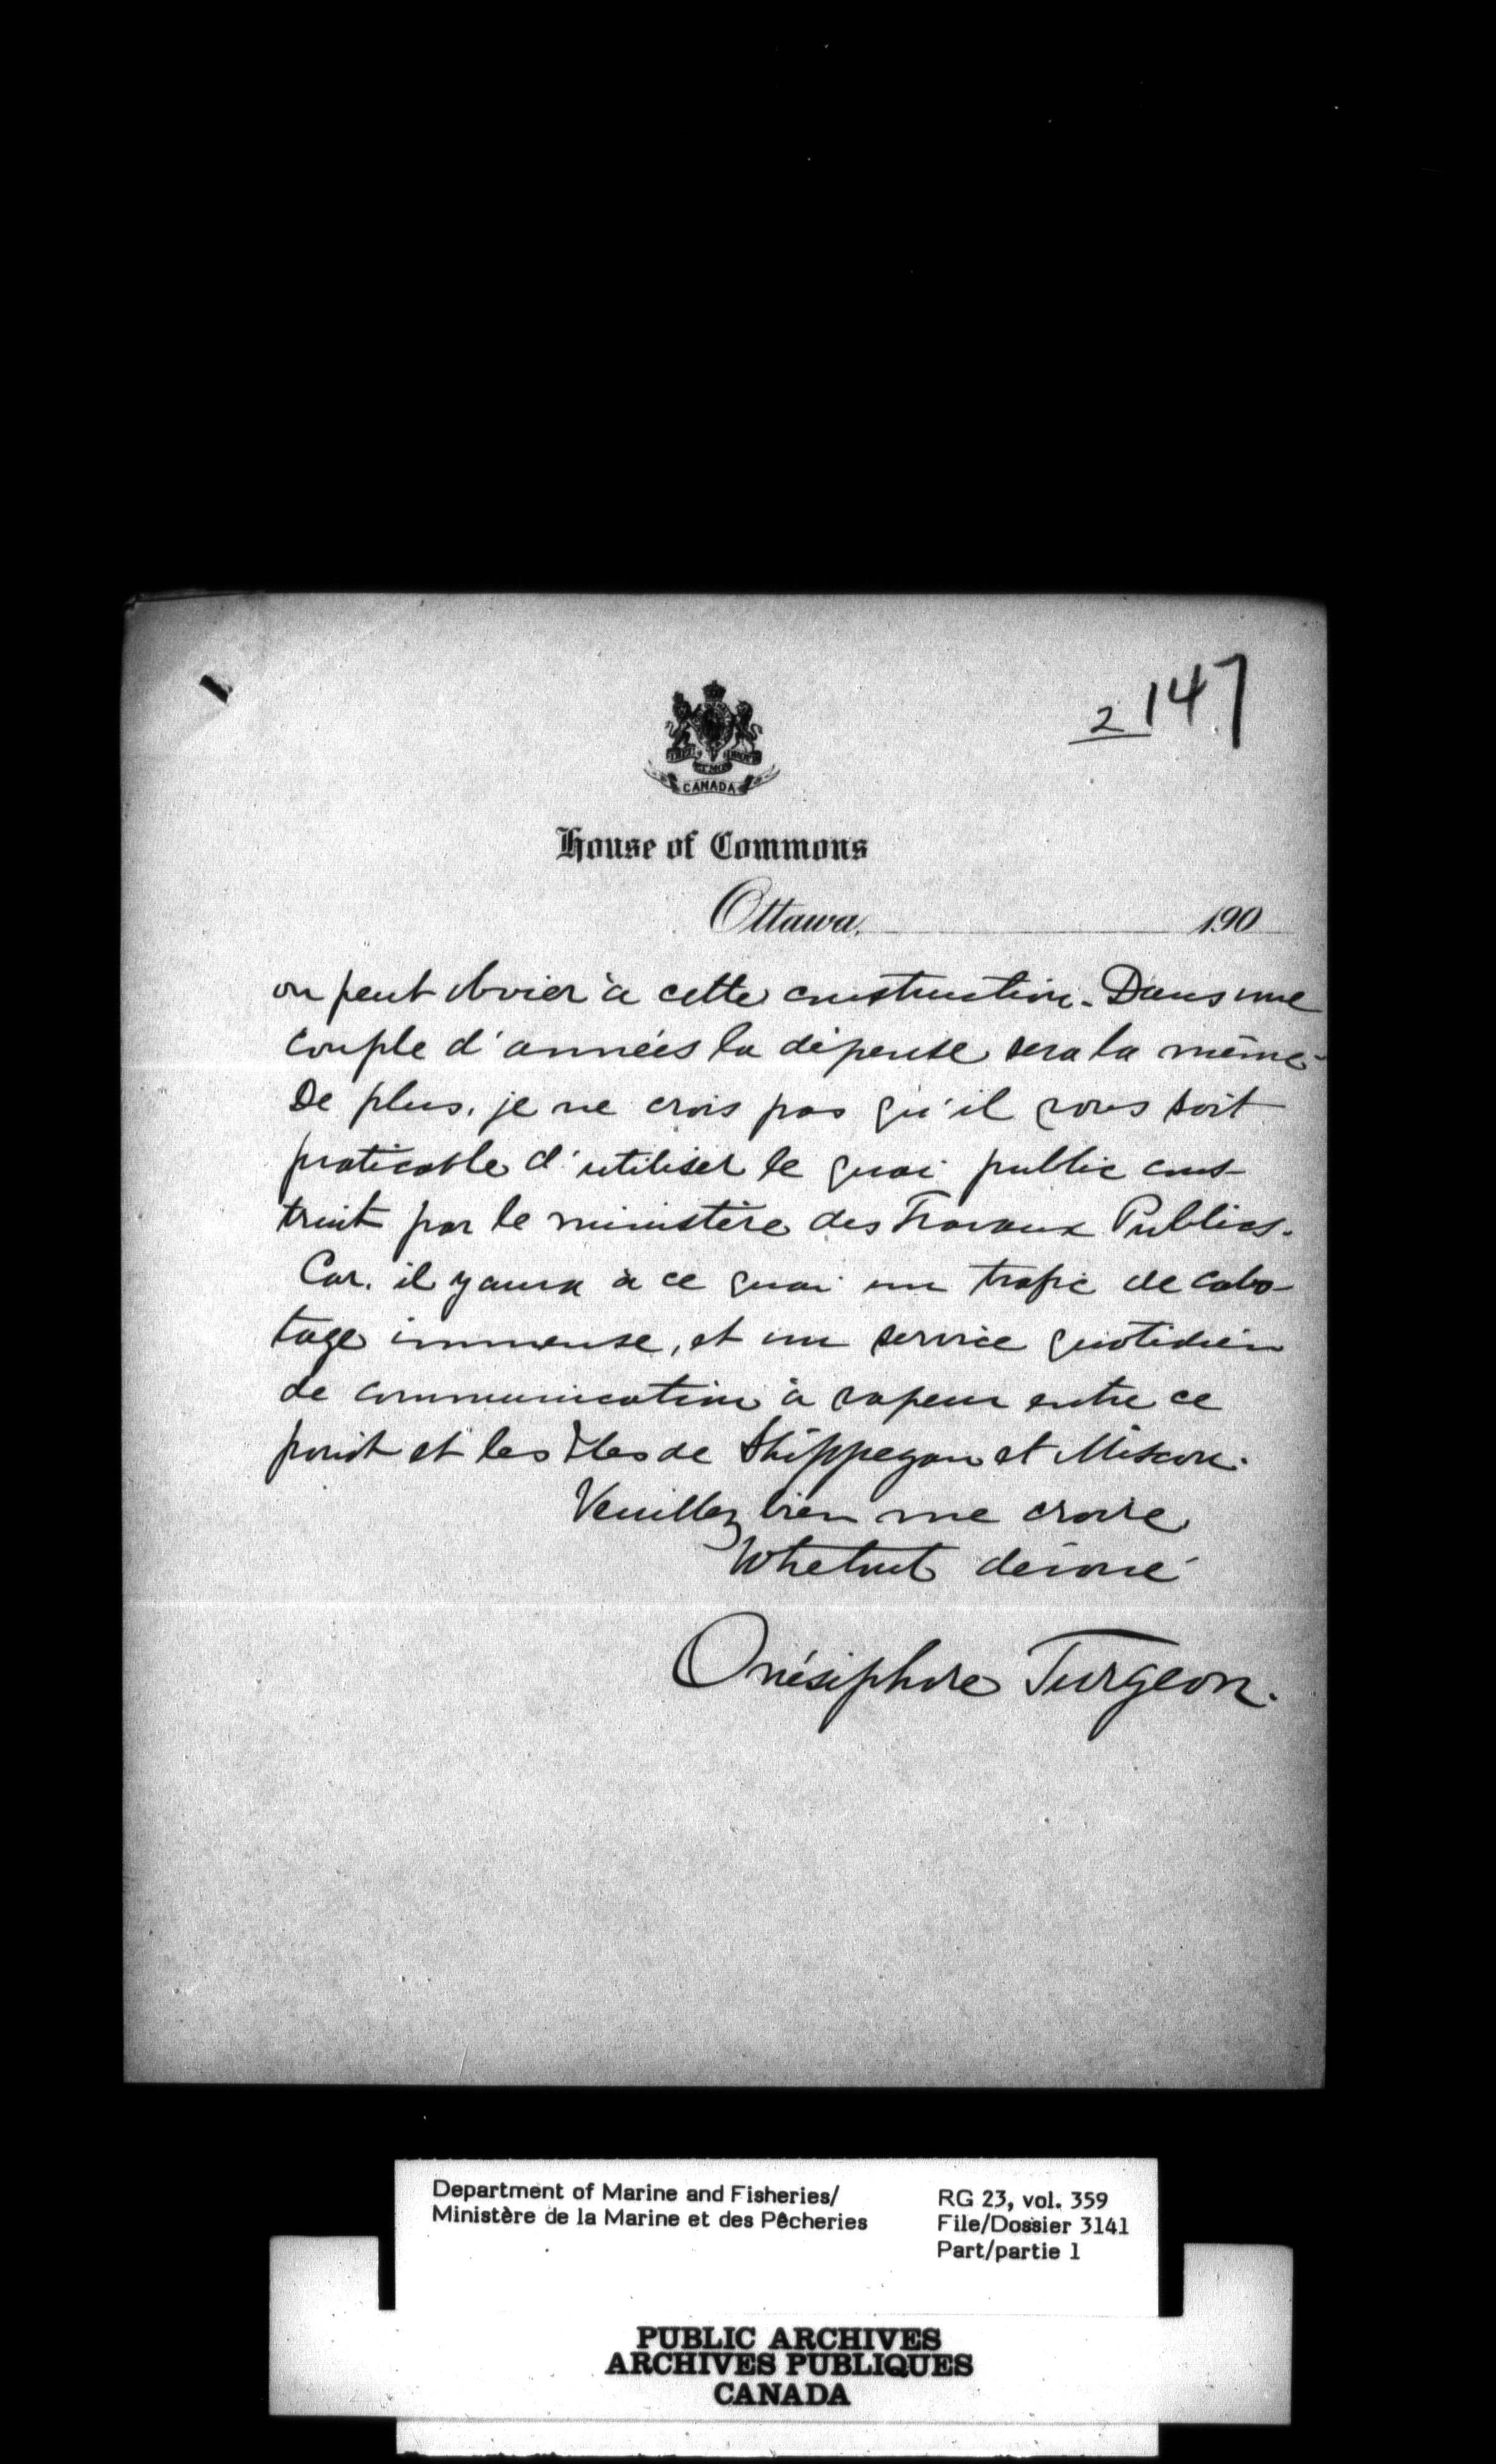 2 147
CANADA
House of Commons
Ottawa, 190
on peut obvier à cette construction. Dans une
couple d'années la dépense sera la même.
De plus, je ne crois pas qu'il vous soit
praticable d'utiliser le quai public cons-
truit par le ministère des Travaux Publics.
Car, il y aura à ce quai un trafic de cabo-
tage immense, et un service quotidien
de communication à vapeur entre ce
point et les Iles de Shippegan et Miscou.
Veuillez bien me croire
Votre tout dévoué
Onésiphore Turgeon.
Department of Marine and Fisheries/ RG 23, vol. 359
Ministère de la Marine et des Pêcheries File/Dossier 3141
Part/partie 1
PUBLIC ARCHIVES
ARCHIVES PUBLIQUES
CANADA